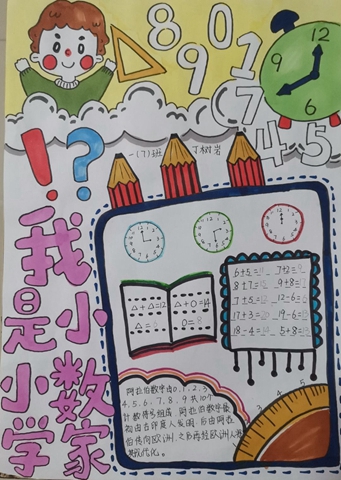 8 9 0 1 7 4 5
12
9
6
! ?
一(7)班 丁树岩
我是小小数学家
△+△=12
△=6
△+○=14
○=8
6+5=11 7+2=9
8+7=15 9+8=17
7+5=12 12-6=6
17+3=20 19-6=13
18-4=14 5+8=13
阿拉伯数字由0,1,2,3
4,5,6,7,8,9共10个
计数符号组成。阿拉伯数字最
初由古印度人发明,后由阿拉
伯传向欧洲,之后再经欧洲人将
其现代化。